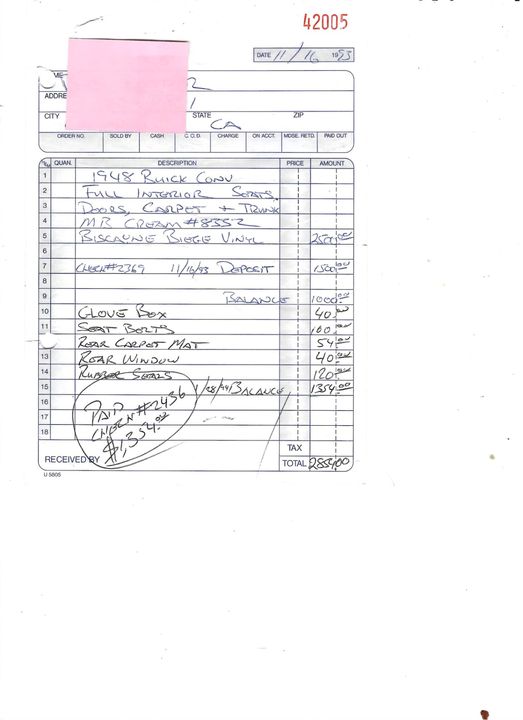 42005
DATE 11/16 1993
ADDRE
CITY STATE CA ZIP
ORDER NO. SOLD BY CASH C.O.D. CHARGE ON ACCT. MDSE. RETD. PAID OUT
QUAN. DESCRIPTION PRICE AMOUNT
1 1948 BUICK CONV
2 FULL INTERIOR SEATS,
3 DOORS, CARPET + TRUNK
4 MR CREAM #8352
5 BISCAYNE BIEGE VINYL 2500.00
6
7 CHECK #2369 11/16/93 DEPOSIT 1500.00
8
9 BALANCE 1000.00
10 GLOVE BOX 40.00
11 SEAT BELTS 100.00
REAR CARPET MAT 54.00
13 REAR WINDOW 40.00
14 RUBBER SEALS 120.00
15 1/28/94 BALANCE 1354.00
16 PAID
17 CHECK #2436
18 $1,354.00
TAX
RECEIVED BY TOTAL 2854.00
U 5805